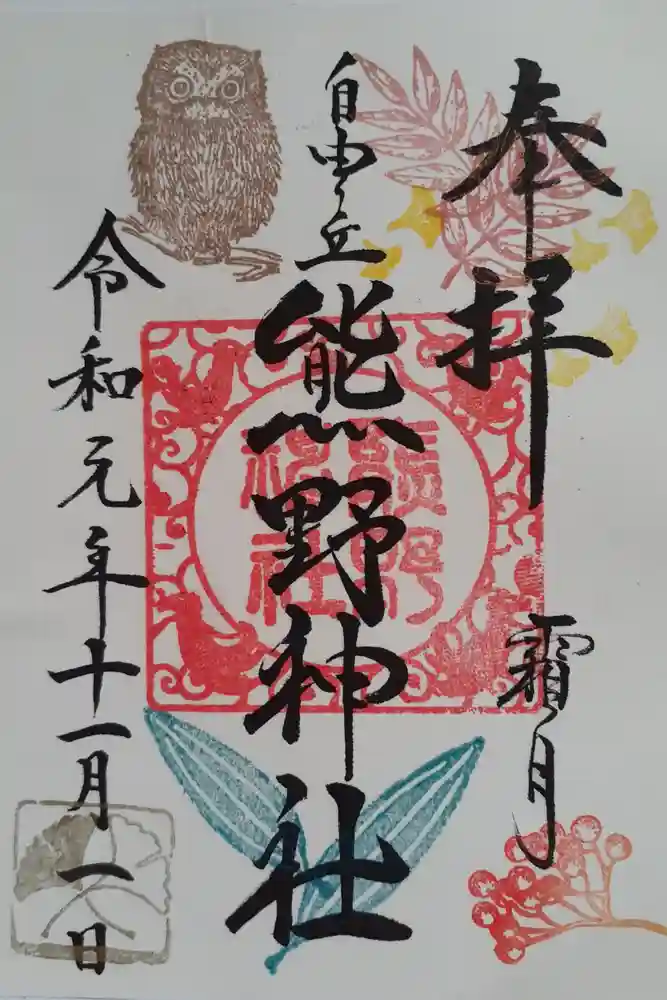 奉拝
霜月
自由ヶ丘
熊野神社
熊野
神社
令和元年十一月一日